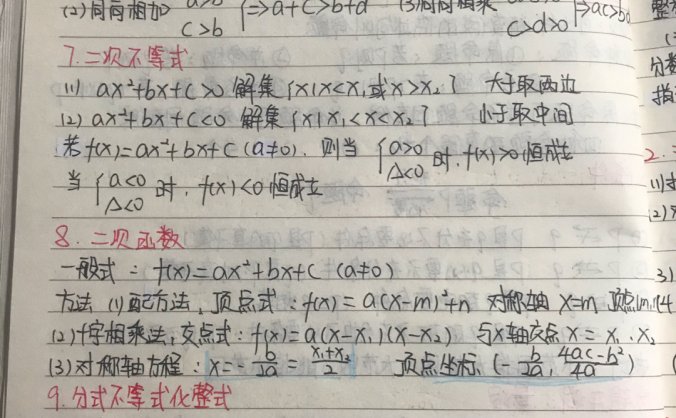 (2)同向相加 a>b c>b }⇒a+c>b+d (3)同向相乘 c>d>0 }⇒ac>bd
7.二次不等式
(1) ax²+bx+c>0 解集{x|x<x₁或x>x₂} 大于取两边
(2) ax²+bx+c<0 解集{x|x₁<x<x₂} 小于取中间
若f(x)=ax²+bx+c(a≠0),则当{a>0 Δ<0 时,f(x)>0恒成立
当{a<0 Δ<0 时,f(x)<0恒成立
8.二次函数
一般式:f(x)=ax²+bx+c (a≠0)
方法 (1)配方法,顶点式:f(x)=a(x-m)²+n 对称轴 x=m 顶点(m,
(2)十字相乘法,交点式:f(x)=a(x-x₁)(x-x₂) 与x轴交点 x=x₁,x₂
(3)对称轴方程:x=-b/2a=x₁+x₂/2 顶点坐标(-b/2a,4ac-b²/4a)
9.分式不等式化整式
分数
指
2.
(1)
(2)
3)
(4